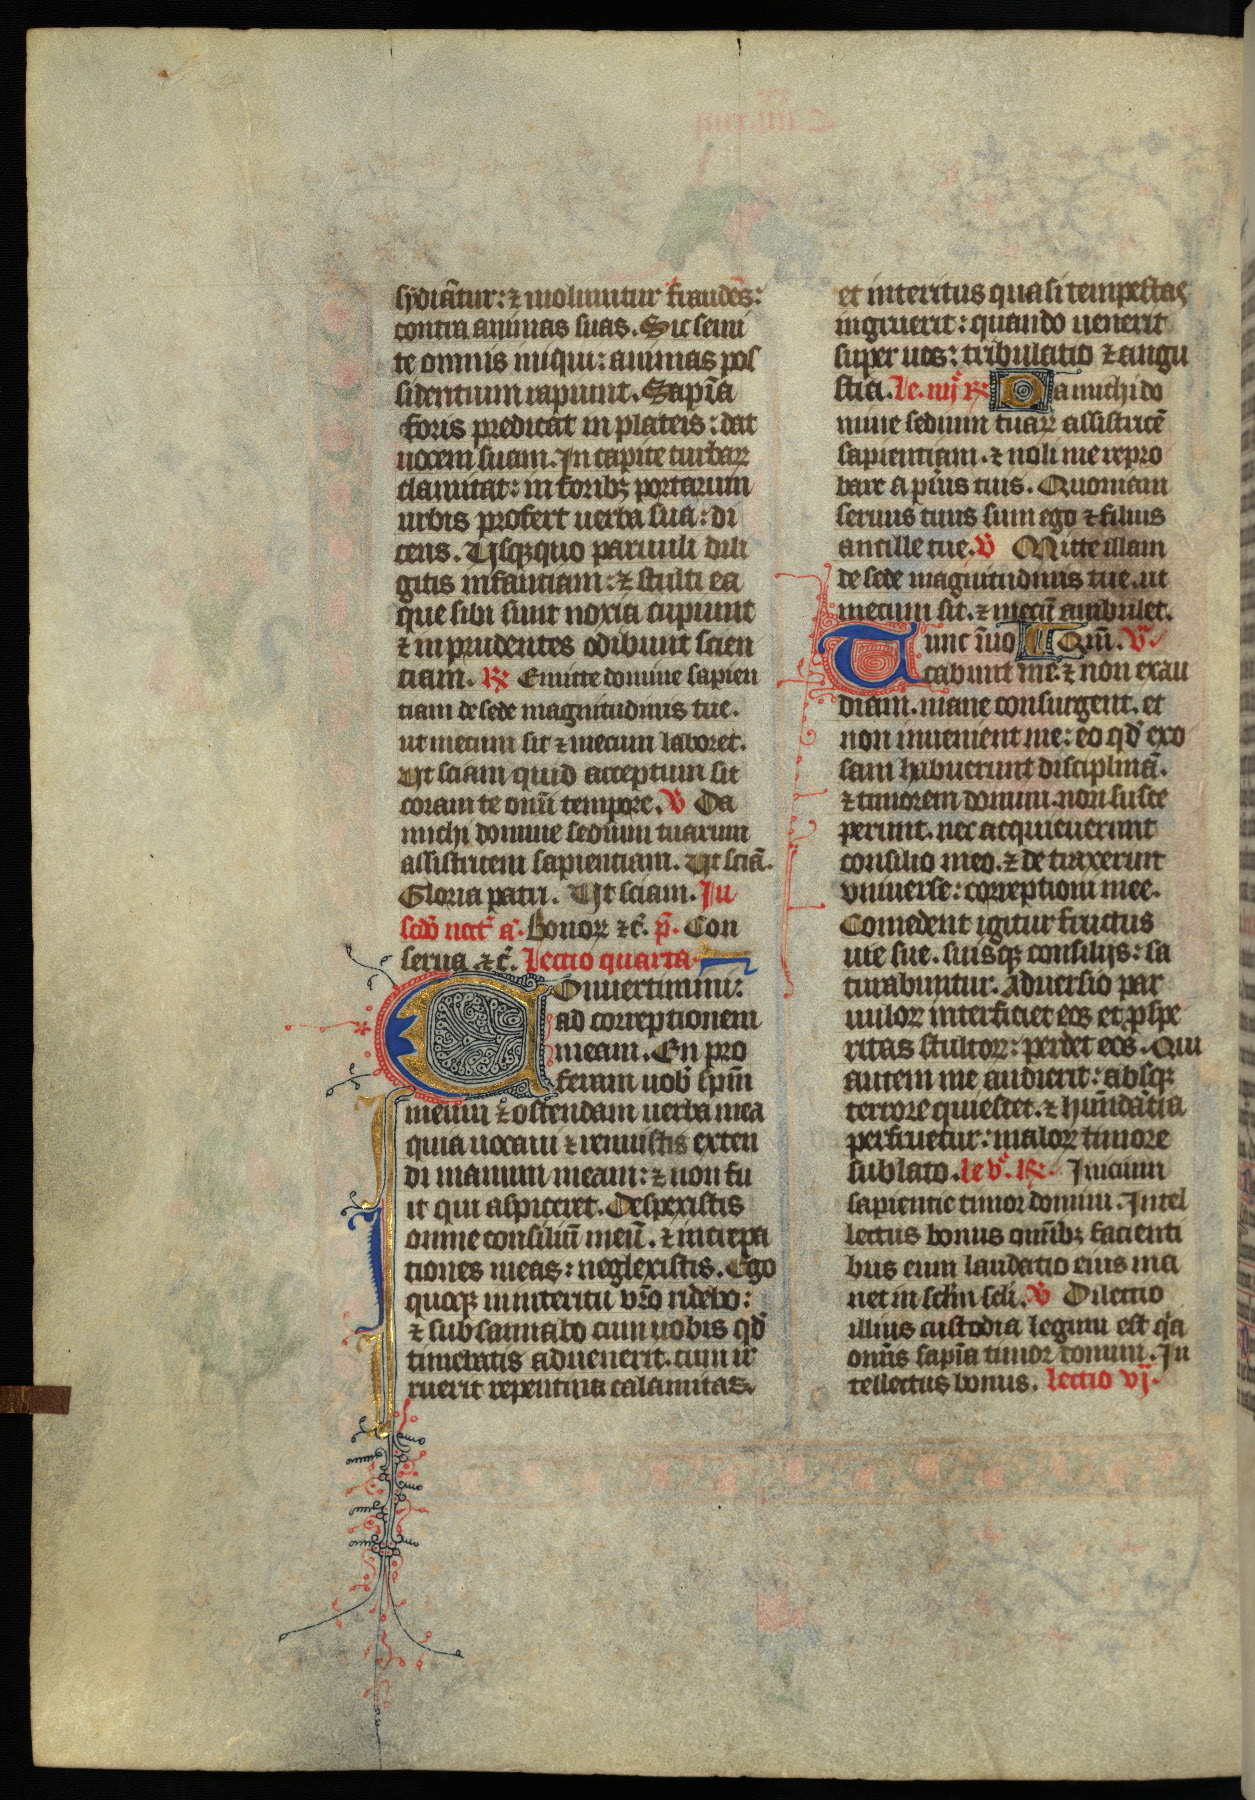 sydiātur: ⁊ moliuntur fraudes:
contra animas suas. Sic semi
te omnis niqui: animas pos
sidentium rapiunt. Sapīa
foris predicat in plateis: dat
uocem suam. In capite turbaꝝ
clamitat: in foribꝫ portarum
urbis profert uerba sua: di
cens. Usqꝫquo paruuli dili
gitis infantiam: ⁊ stulti ea
que sibi sunt noxia cupiunt
⁊ inprudentes odibunt scien
tiam. ℟ Emitte domine sapien
tiam de sede magnitudinis tue.
ut mecum sit ⁊ mecum laboret.
Ut sciam quid acceptum sit
coram te omī tempore. ℣ Da
michi domine sedium tuarum
assistricem sapientiam. Ut sciā.
Gloria patri. Ut sciam. In
scdo noct' a. Bonoꝝ ⁊c̄. p̄. Con
serua ⁊c̄. Lectio quarta
Conuertimini:
ad correptionem
meam. En pro
feram uob' spm̄
meum ⁊ ostendam uerba mea
quia uocaui ⁊ renuistis exten
di manum meam: ⁊ non fu
it qui aspiceret. Despexistis
omne consiliū meū. ⁊ increpa
tiones meas: neglexistis. Ego
quoqꝫ in interitu vr̄o ridebo:
⁊ subsannabo cum uobis qd'
timebatis aduenerit. cum ir
ruerit repentina calamitas.
et interitus quasi tempestas
ingruerit: quando uenerit
super uos: tribulatio ⁊ angu
stia. le. iiij ℟ Da michi do
mine sedium tuaꝝ assistricē
sapientiam. ⁊ noli me repro
bare a pūis tuis. Quoniam
seruus tuus sum ego ⁊ filius
ancille tue. ℣ Mitte illam
de sede magnitudinis tue. ut
mecum sit. ⁊ mecū ambulet.
Tunc īuo Qm̄. ℣.
cabunt me. ⁊ non exau
diam. mane consurgent. et
non inuenient me: eo qd' exo
sam habuerunt disciplinā.
⁊ timorem domini. non susce
perunt. nec acquieuerunt
consilio meo. ⁊ detraxerunt
vniuerse: correptioni mee.
Comedent igitur fructus
uie sue. suisqꝫ consilijs: sa
turabuntur. Aduersio par
uuloꝝ interficiet eos et ꝓspe
ritas stultoꝝ: perdet eos. Qui
autem me audierit: absqꝫ
terrore quiescet. ⁊ hūndātia
perfruetur: maloꝝ timore
sublato. le v. ℟. Inicium
sapientie timor domini. Intel
lectus bonus om̄ibꝫ facienti
bus eum laudatio eius ma
net in sclm̄ scli. ℣ Dilectio
illius custodia legum est q̄a
omīs sapīa timor domini. In
tellectus bonus. lectio vj.